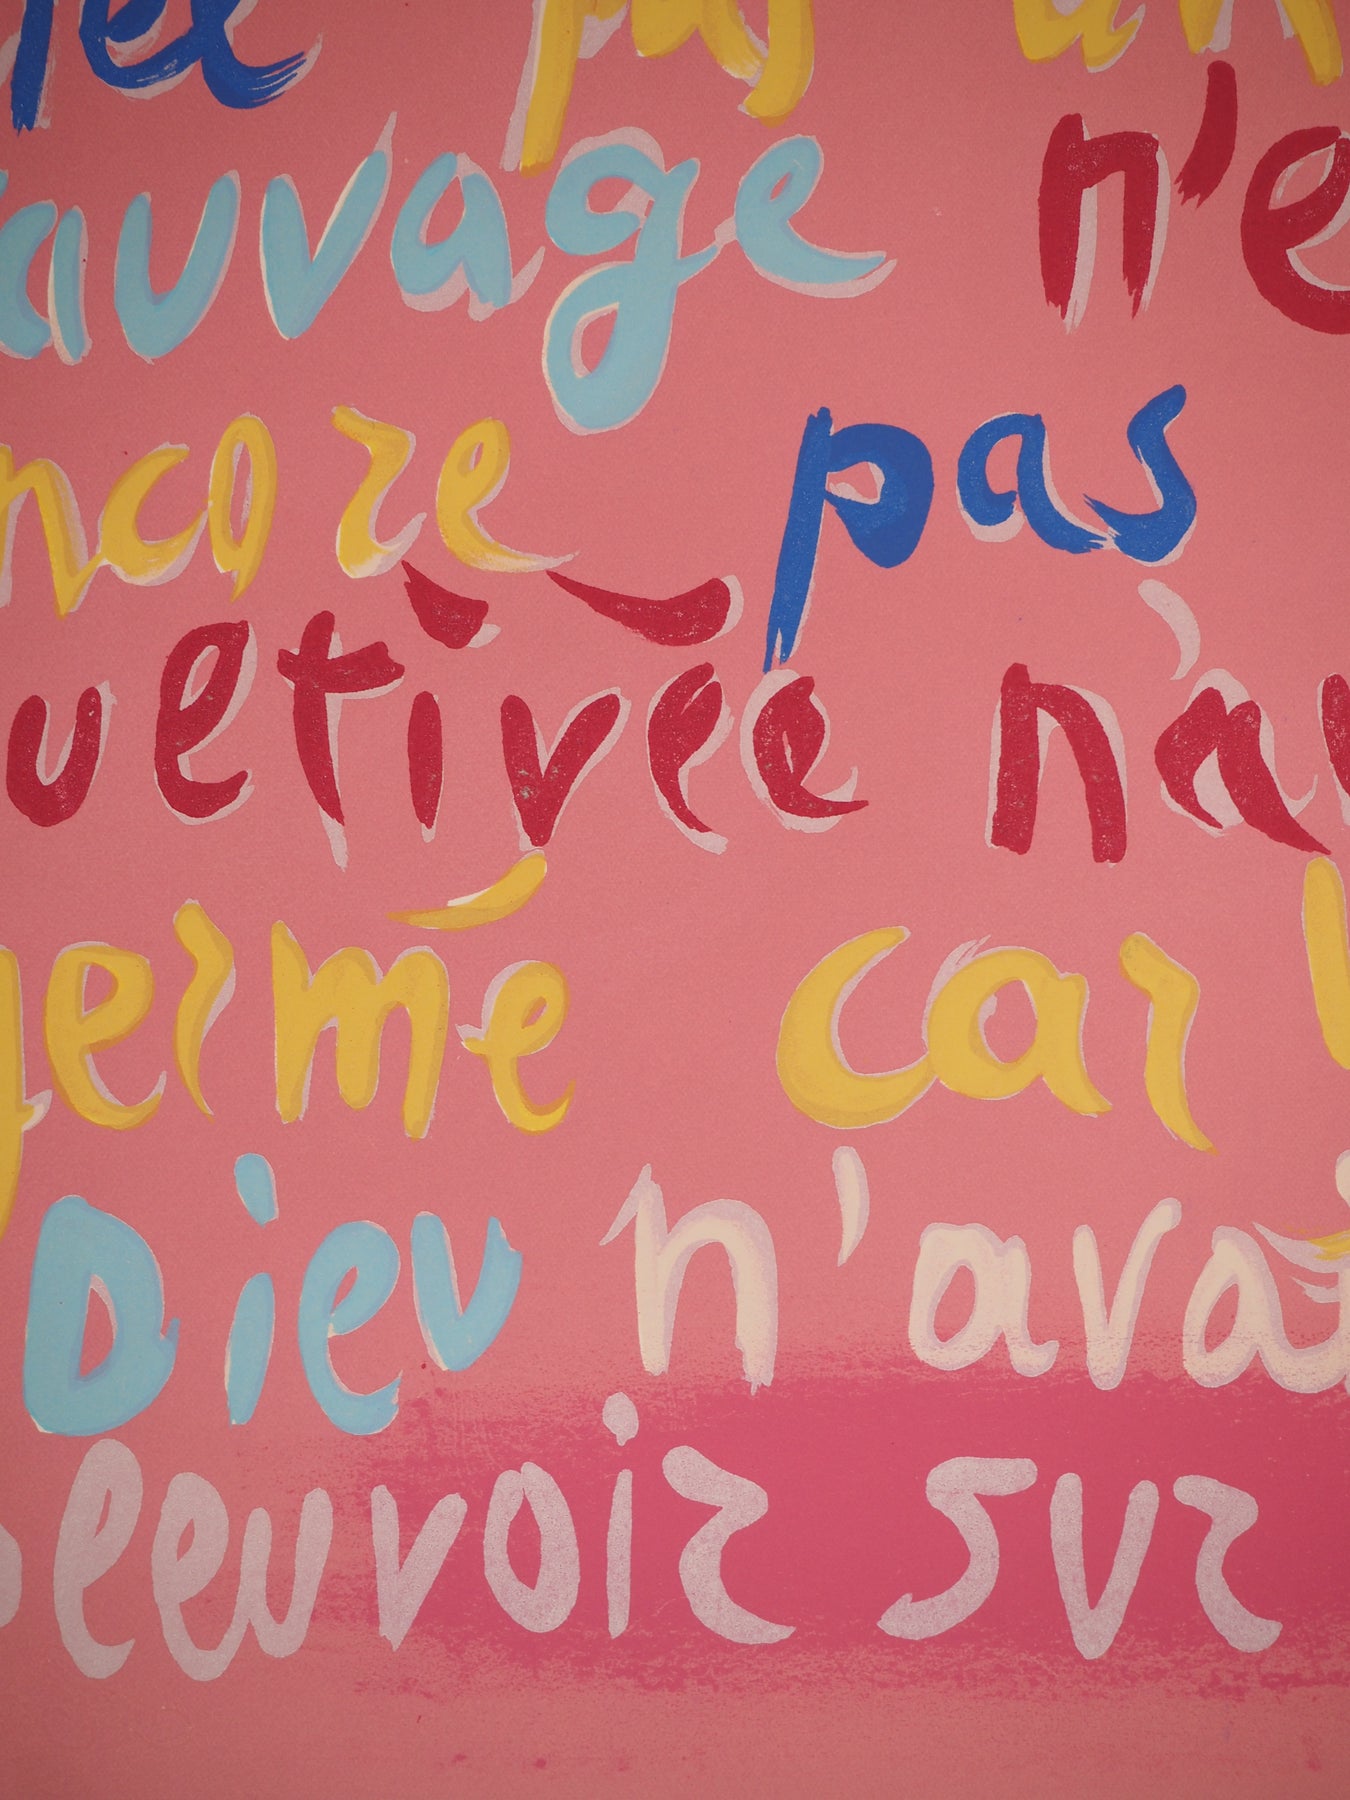 pas
auvage n'e
ncore pas
ultivée n'av
germé car
Dieu n'ava
leuvoir sur